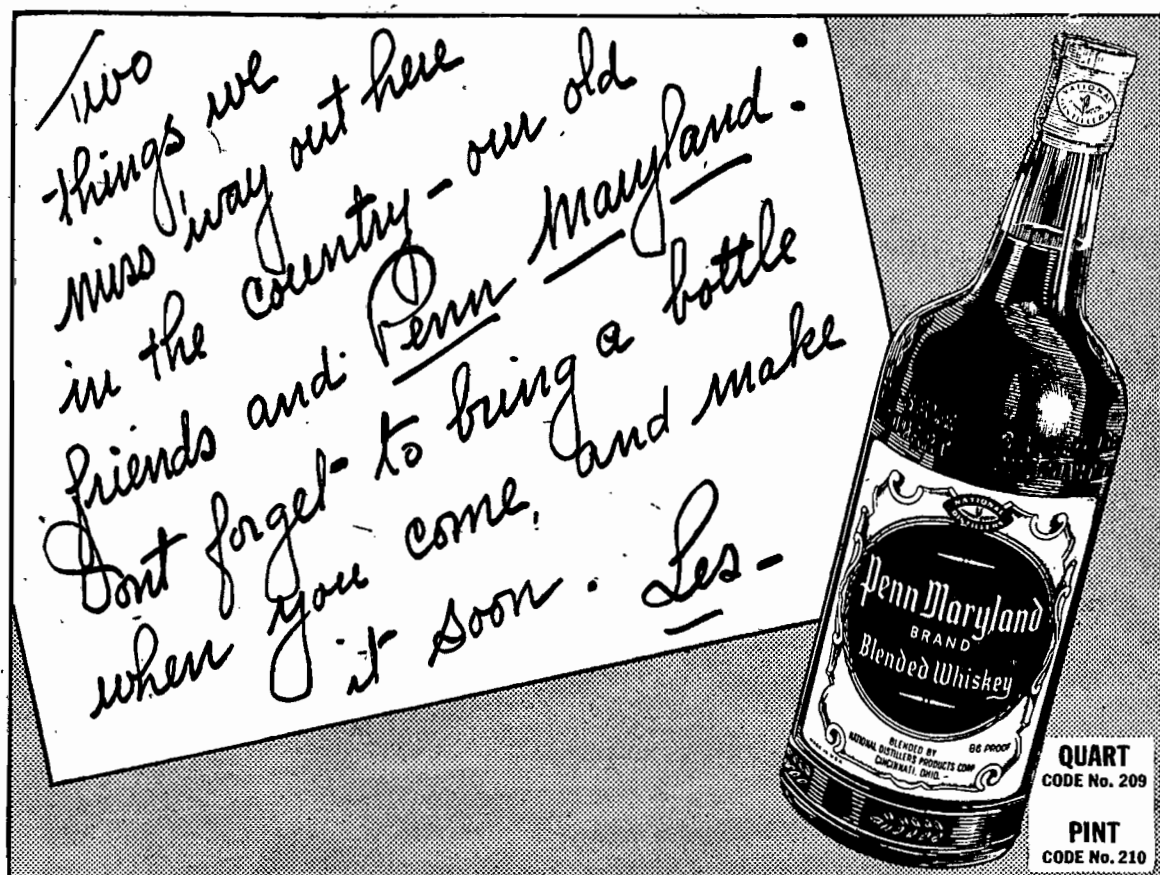 Two
things we
miss way out here
in the country - our old
friends and Penn Maryland :
Dont forget - to bring a bottle
when you come, and make
it soon. Les -
NATIONAL
DISTILLERS
NATIONAL
Penn Maryland
BRAND
Blended Whiskey
BLENDED BY
86 PROOF
NATIONAL DISTILLERS PRODUCTS CORP
CINCINNATI, OHIO.
MADE IN U.S.A.
QUART
CODE No. 209
PINT
CODE No. 210